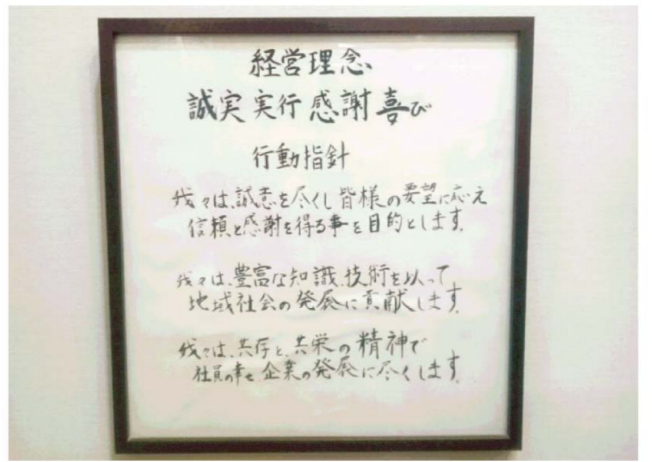 経営理念
誠実実行感謝喜び
行動指針
我々は、誠意を尽くし皆様の要望に応え
信頼と感謝を得る事を目的とします。
我々は、豊富な知識、技術を以って
地域社会の発展に貢献します。
我々は、共存と、共栄の精神で
社員の幸せ企業の発展に尽くします。